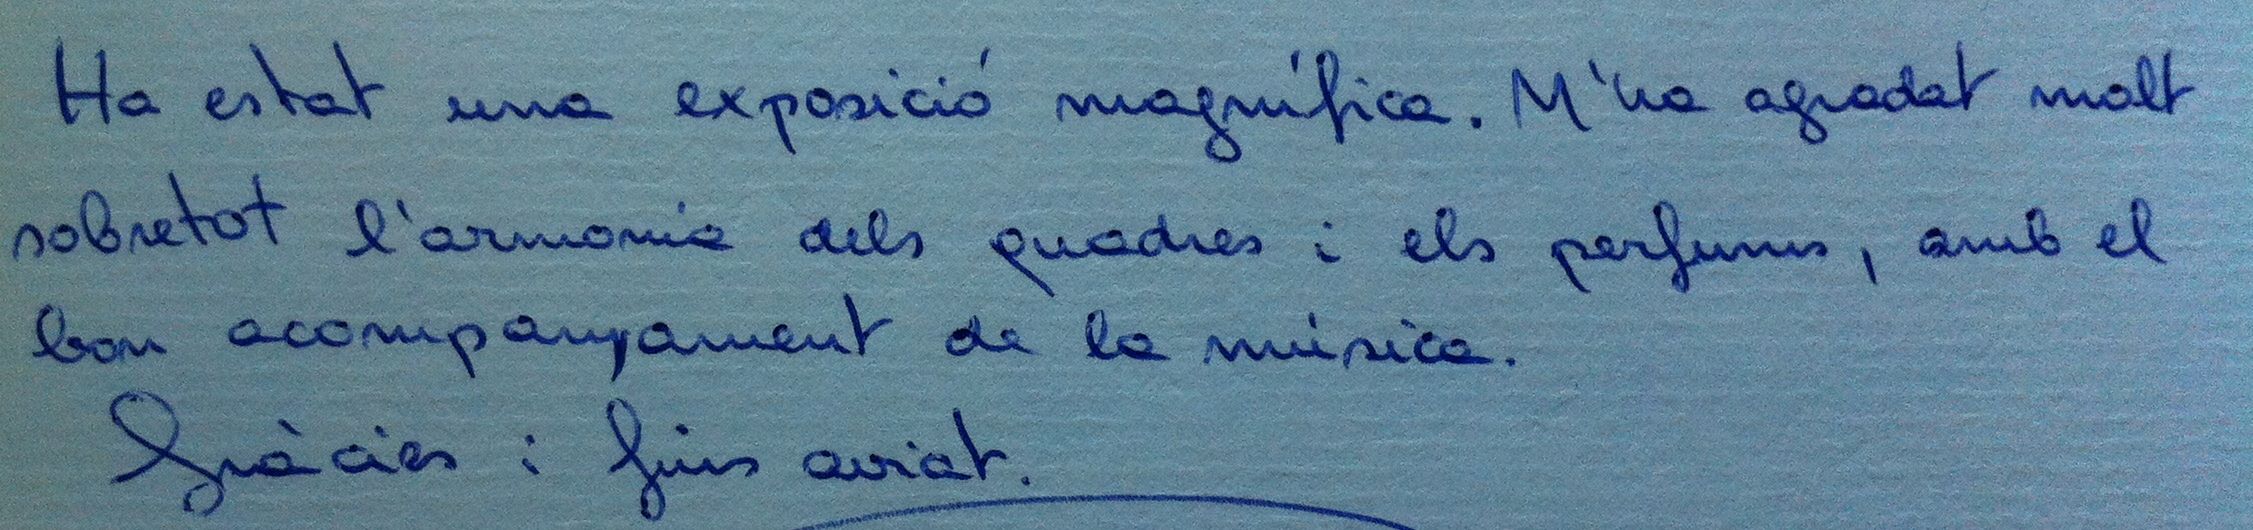 Ha estat una exposició magnífica. M'ha agradat molt
sobretot l'armonia dels quadres i els perfums, amb el
bon acompanyament de la música.
Gràcies i fins aviat.